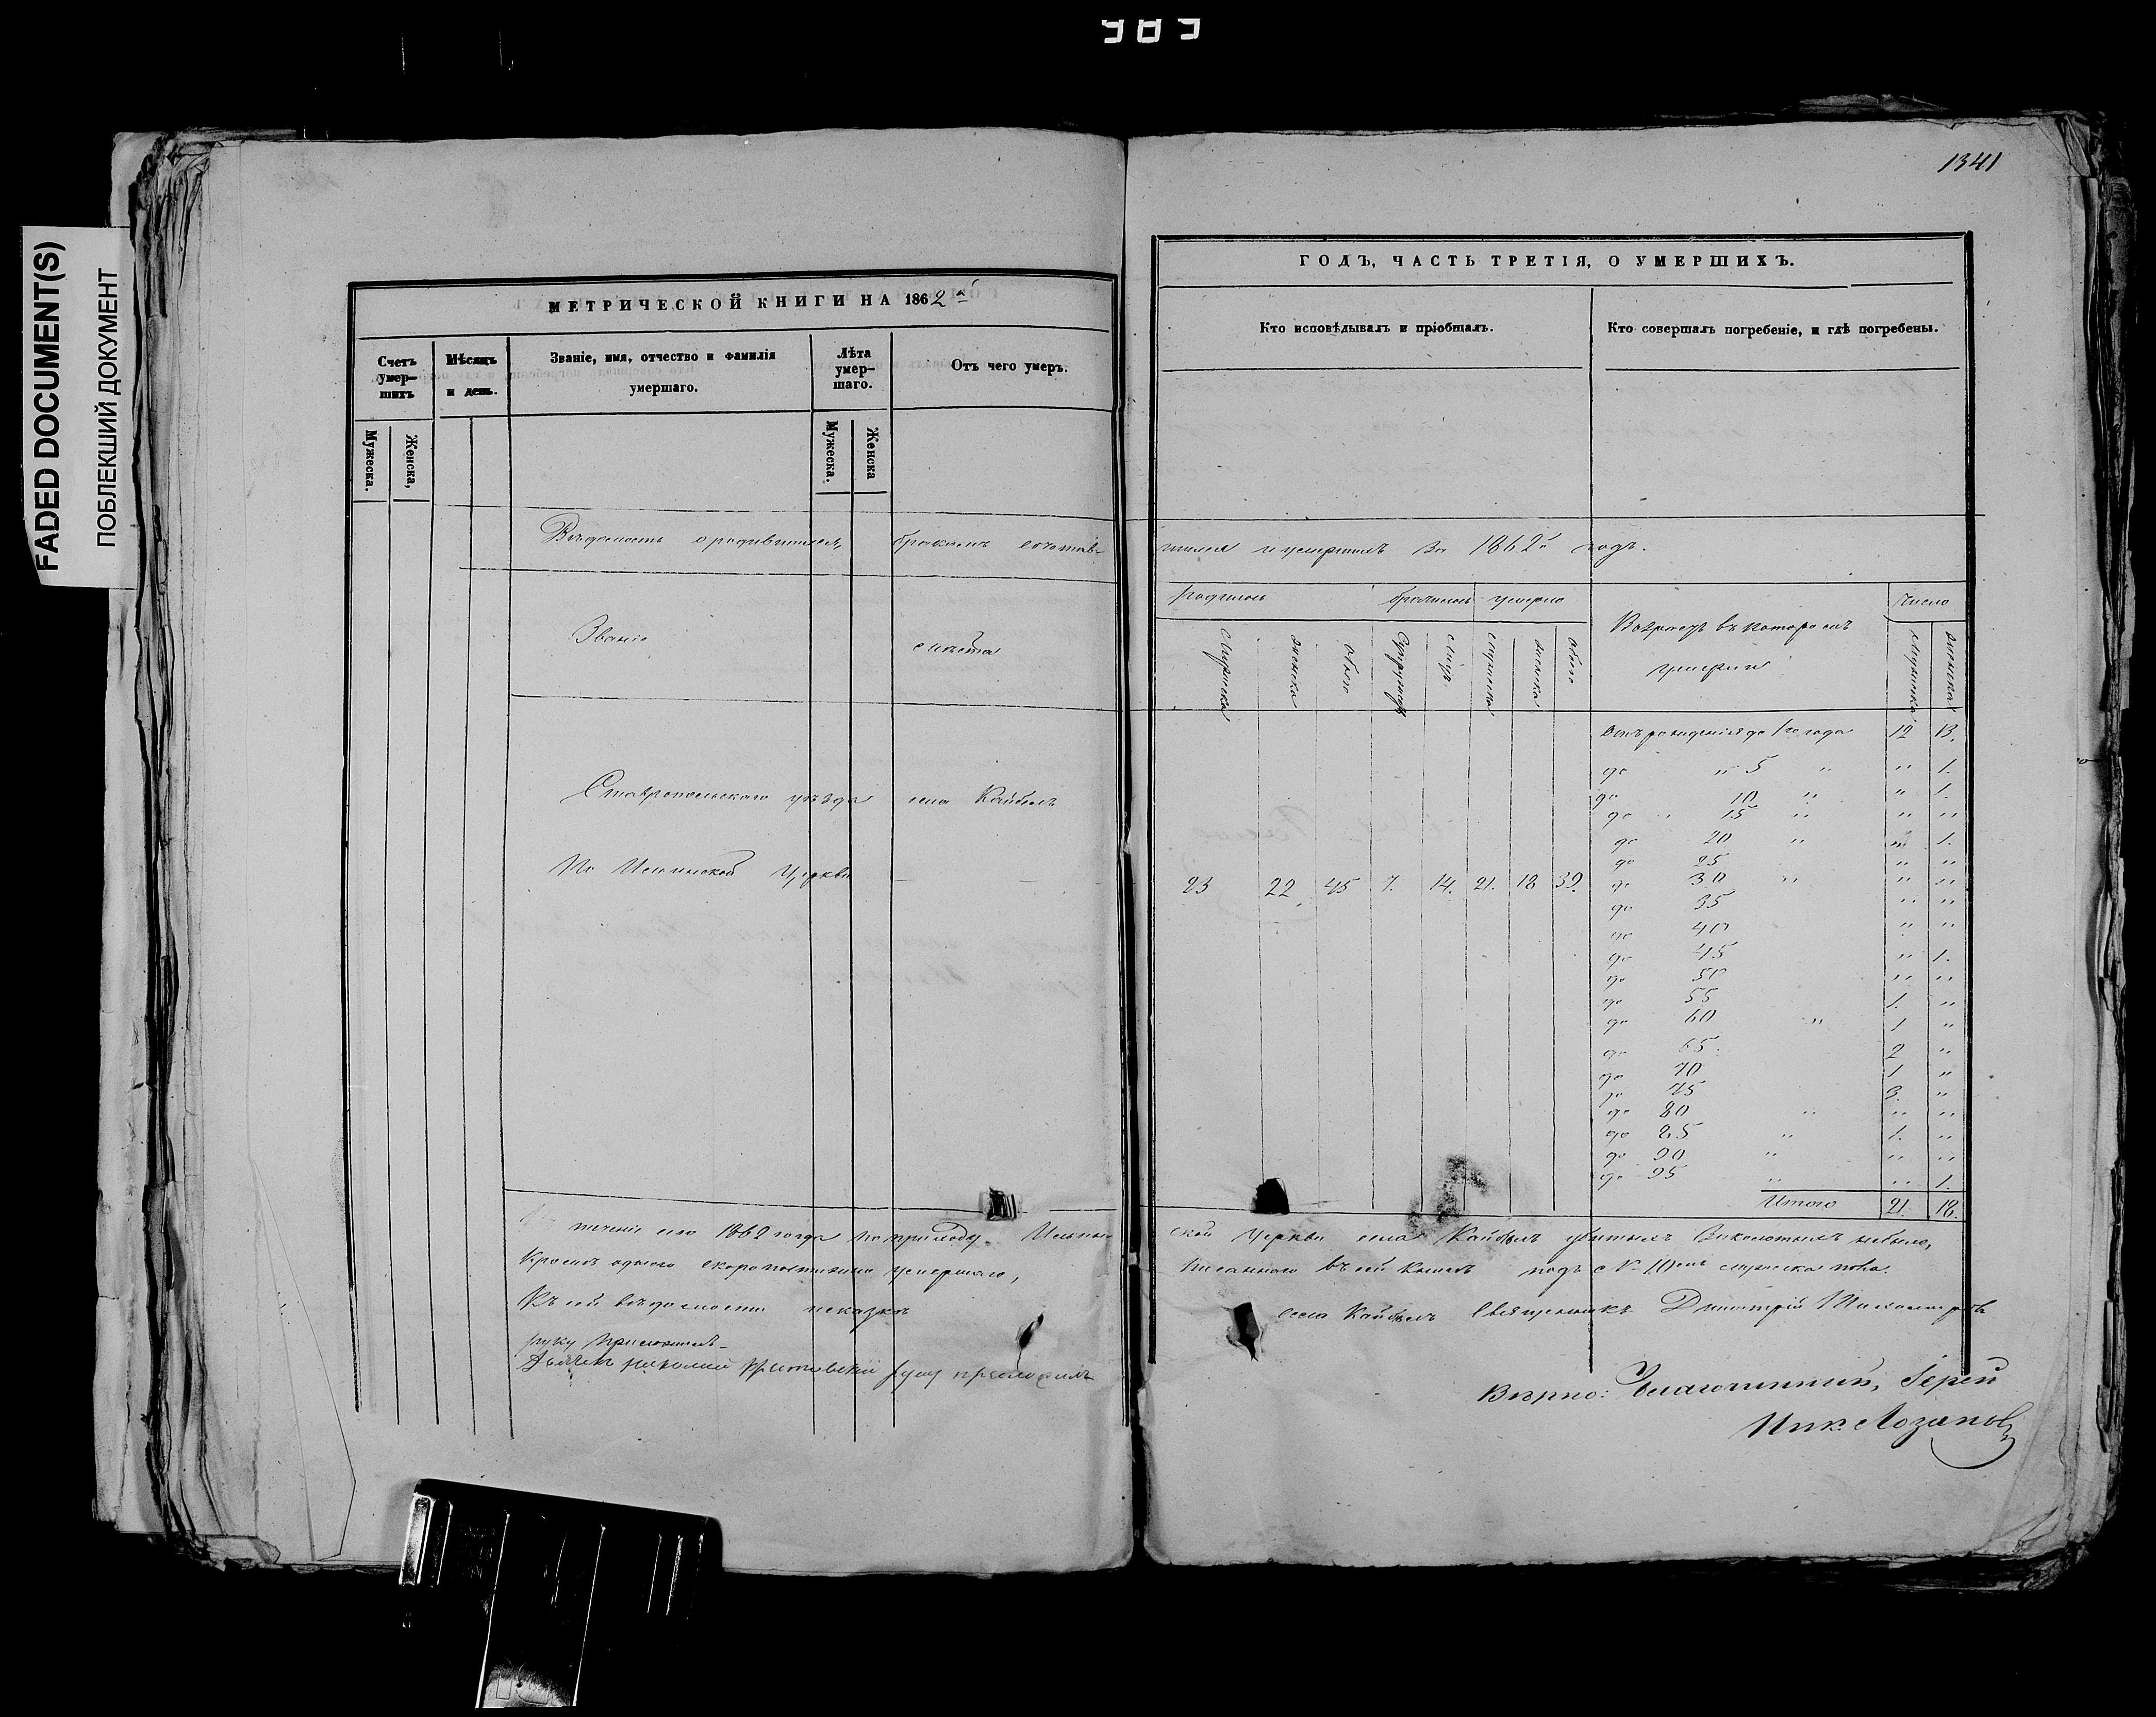 989
1341
FADED DOCUMENT(S)
ПОБЛЕКШИЙ ДОКУМЕНТ
МЕТРИЧЕСКОЙ КНИГИ НА 1862й
Счетъ умер-шихъ
Мѣсяцъ и день.
Званіе, имя, отчество и фамилія умершаго.
Лѣта умер-шаго.
Отъ чего умеръ.
Мужеска.
Женска,
Мужеска.
Женска
ГОДЪ, ЧАСТЬ ТРЕТІЯ, О УМЕРШИХЪ.
Кто исповѣдывалъ и пріобщалъ.
Кто совершалъ погребеніе, и гдѣ погребены.
Вѣдомость о родившихся, бракомъ сочетав-
шихся и умершихъ за 1862й годъ.
Званіе
мѣста
родилось
умерло
Возрастъ въ которомъ умерли
Число
мужеска
женска
обоего
мужеска
женска
обоего
мужеска
женска
Ставропольскаго уѣзда села Кайбелъ
По церкви
23 22. 45 7. 14. 21. 18 39.
отъ рожденія до 1го года 12 13.
до " 5 " " 1.
до 10 " " 1.
до " 15 " " "
до 20 " " 1.
до 25 " "
до 30 " " "
до 35 " "
до 40 " "
до 45 " 1.
до 50 " "
до 55 1. "
до 60 " 1 "
до 65 2 "
до 70 1 "
до 75 3. "
до 80 " " "
до 85 " 1. "
до 90 " " "
до 95 " " 1.
Итого 21. 18.
теченіе сего 1862 года по приходу
ской Церкви села Кайбелъ убитыхъ небыло,
Кромѣ одного скоропостижно умершаго,
писаннаго въ сей книгѣ подъ № 10мъ мужеска пола.
Къ сей вѣдомости
села Кайбелъ Священникъ Дмитрій
руку приложилъ
руку приложилъ
Вѣрно: Благочинный, Іерей
Ник. Лозановъ